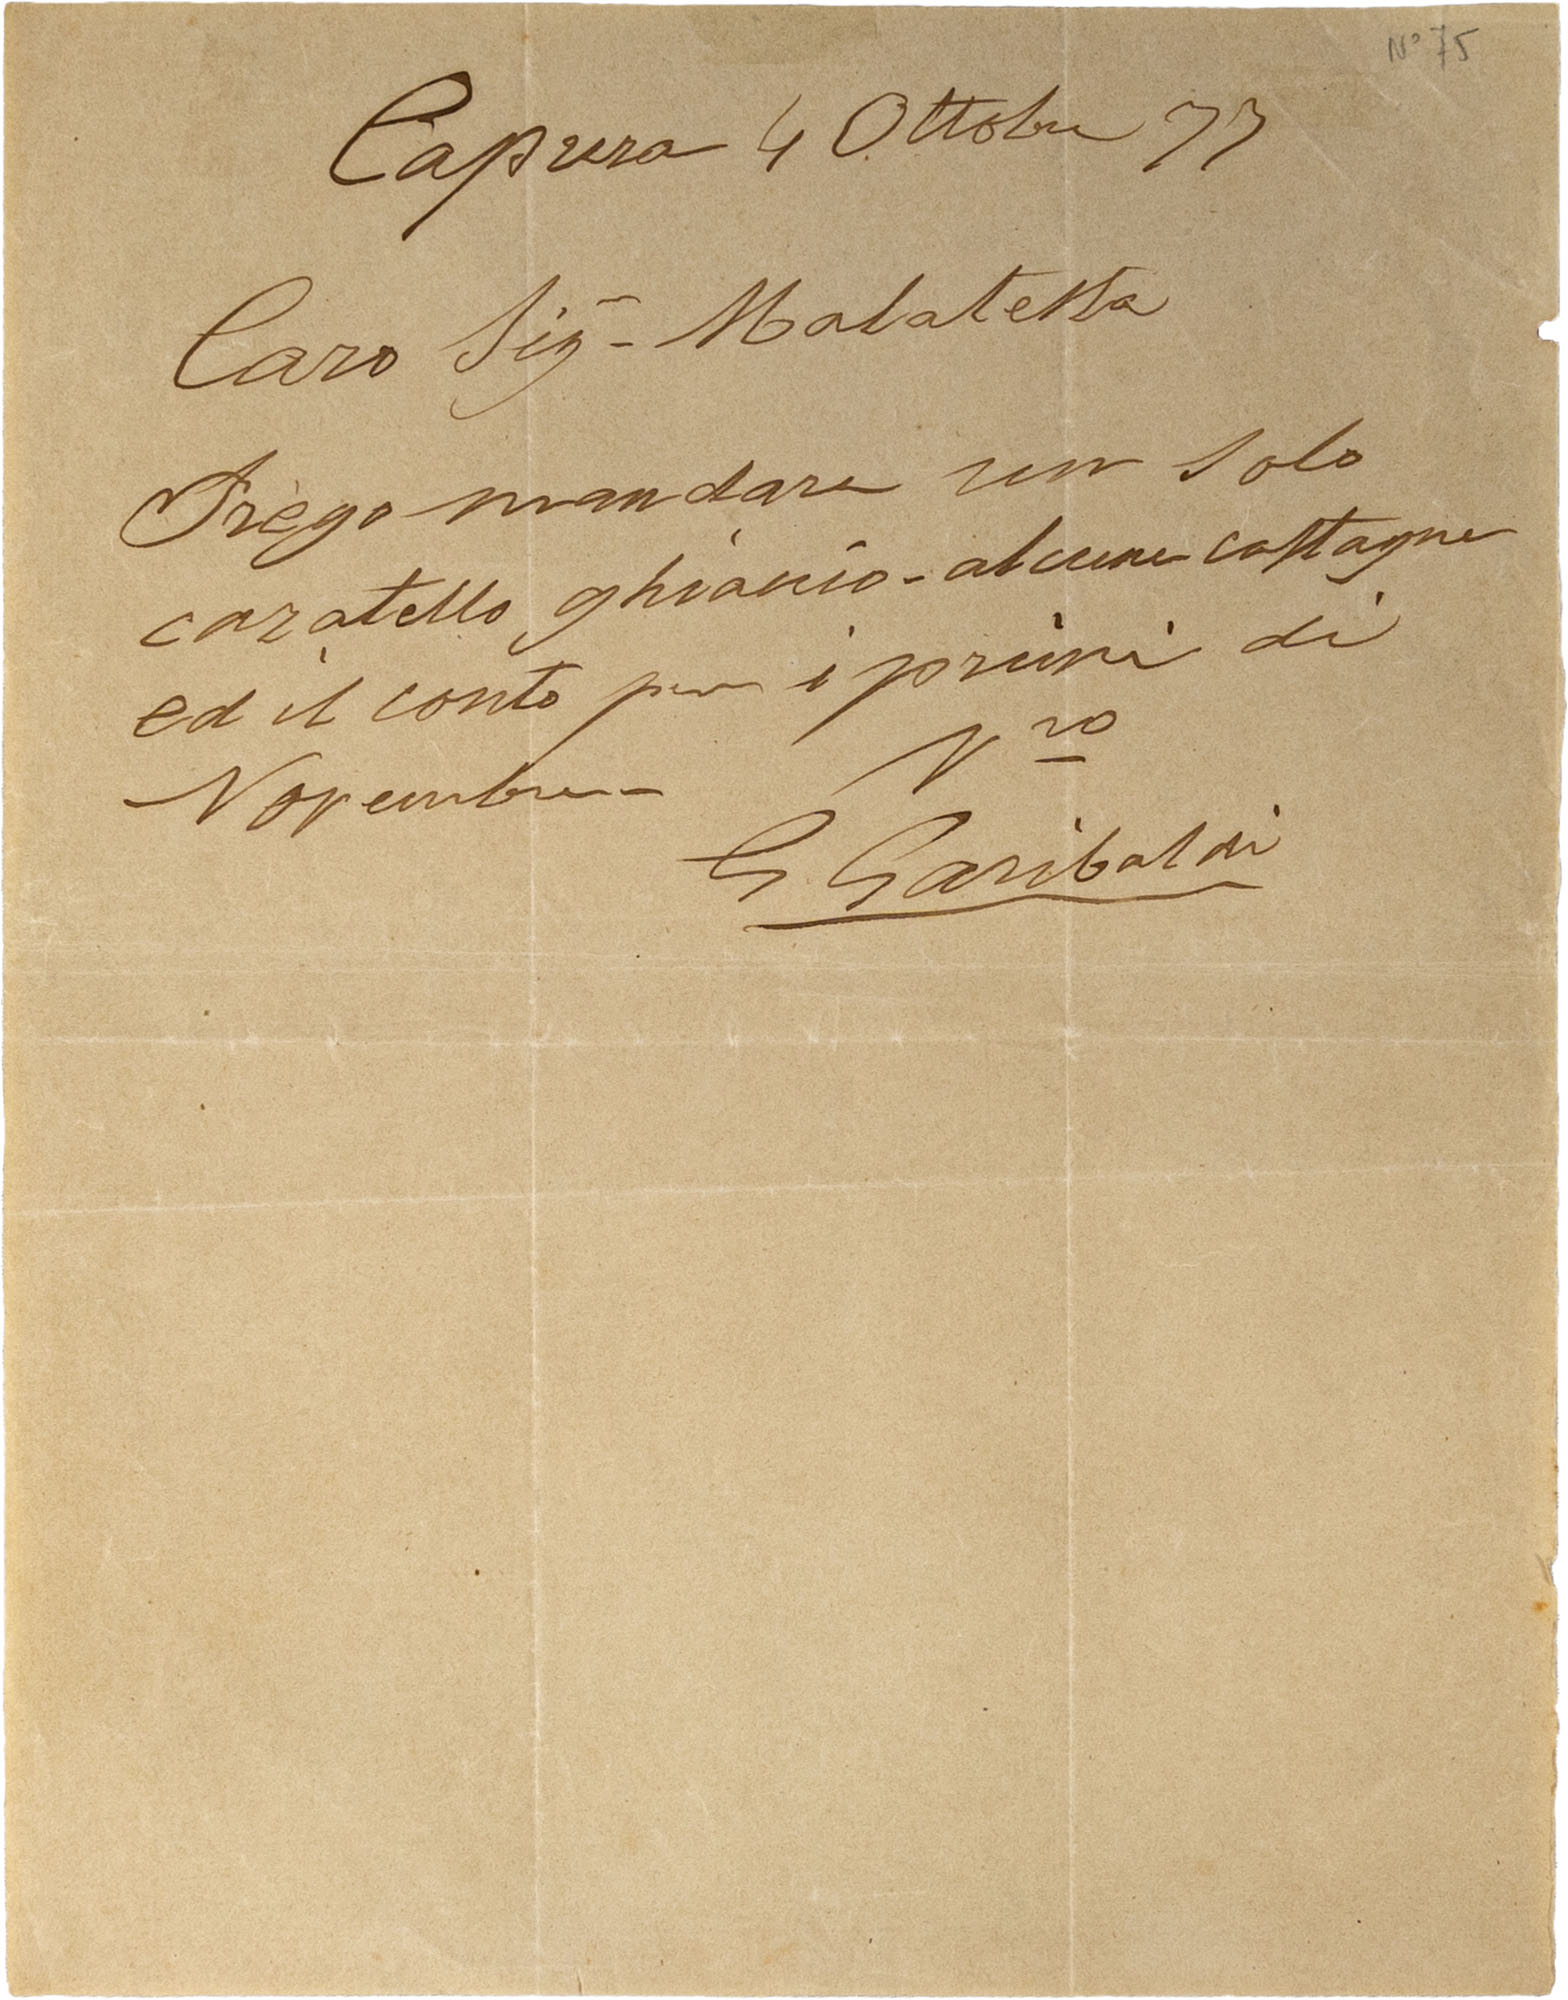 N° 75
Caprera 4 Ottobre 77
Caro Sigr. Malatesta
Prego mandare un solo
caratello ghiaccio - alcune castagne
ed il conto per i primi di
Novembre -
Vro
G Garibaldi